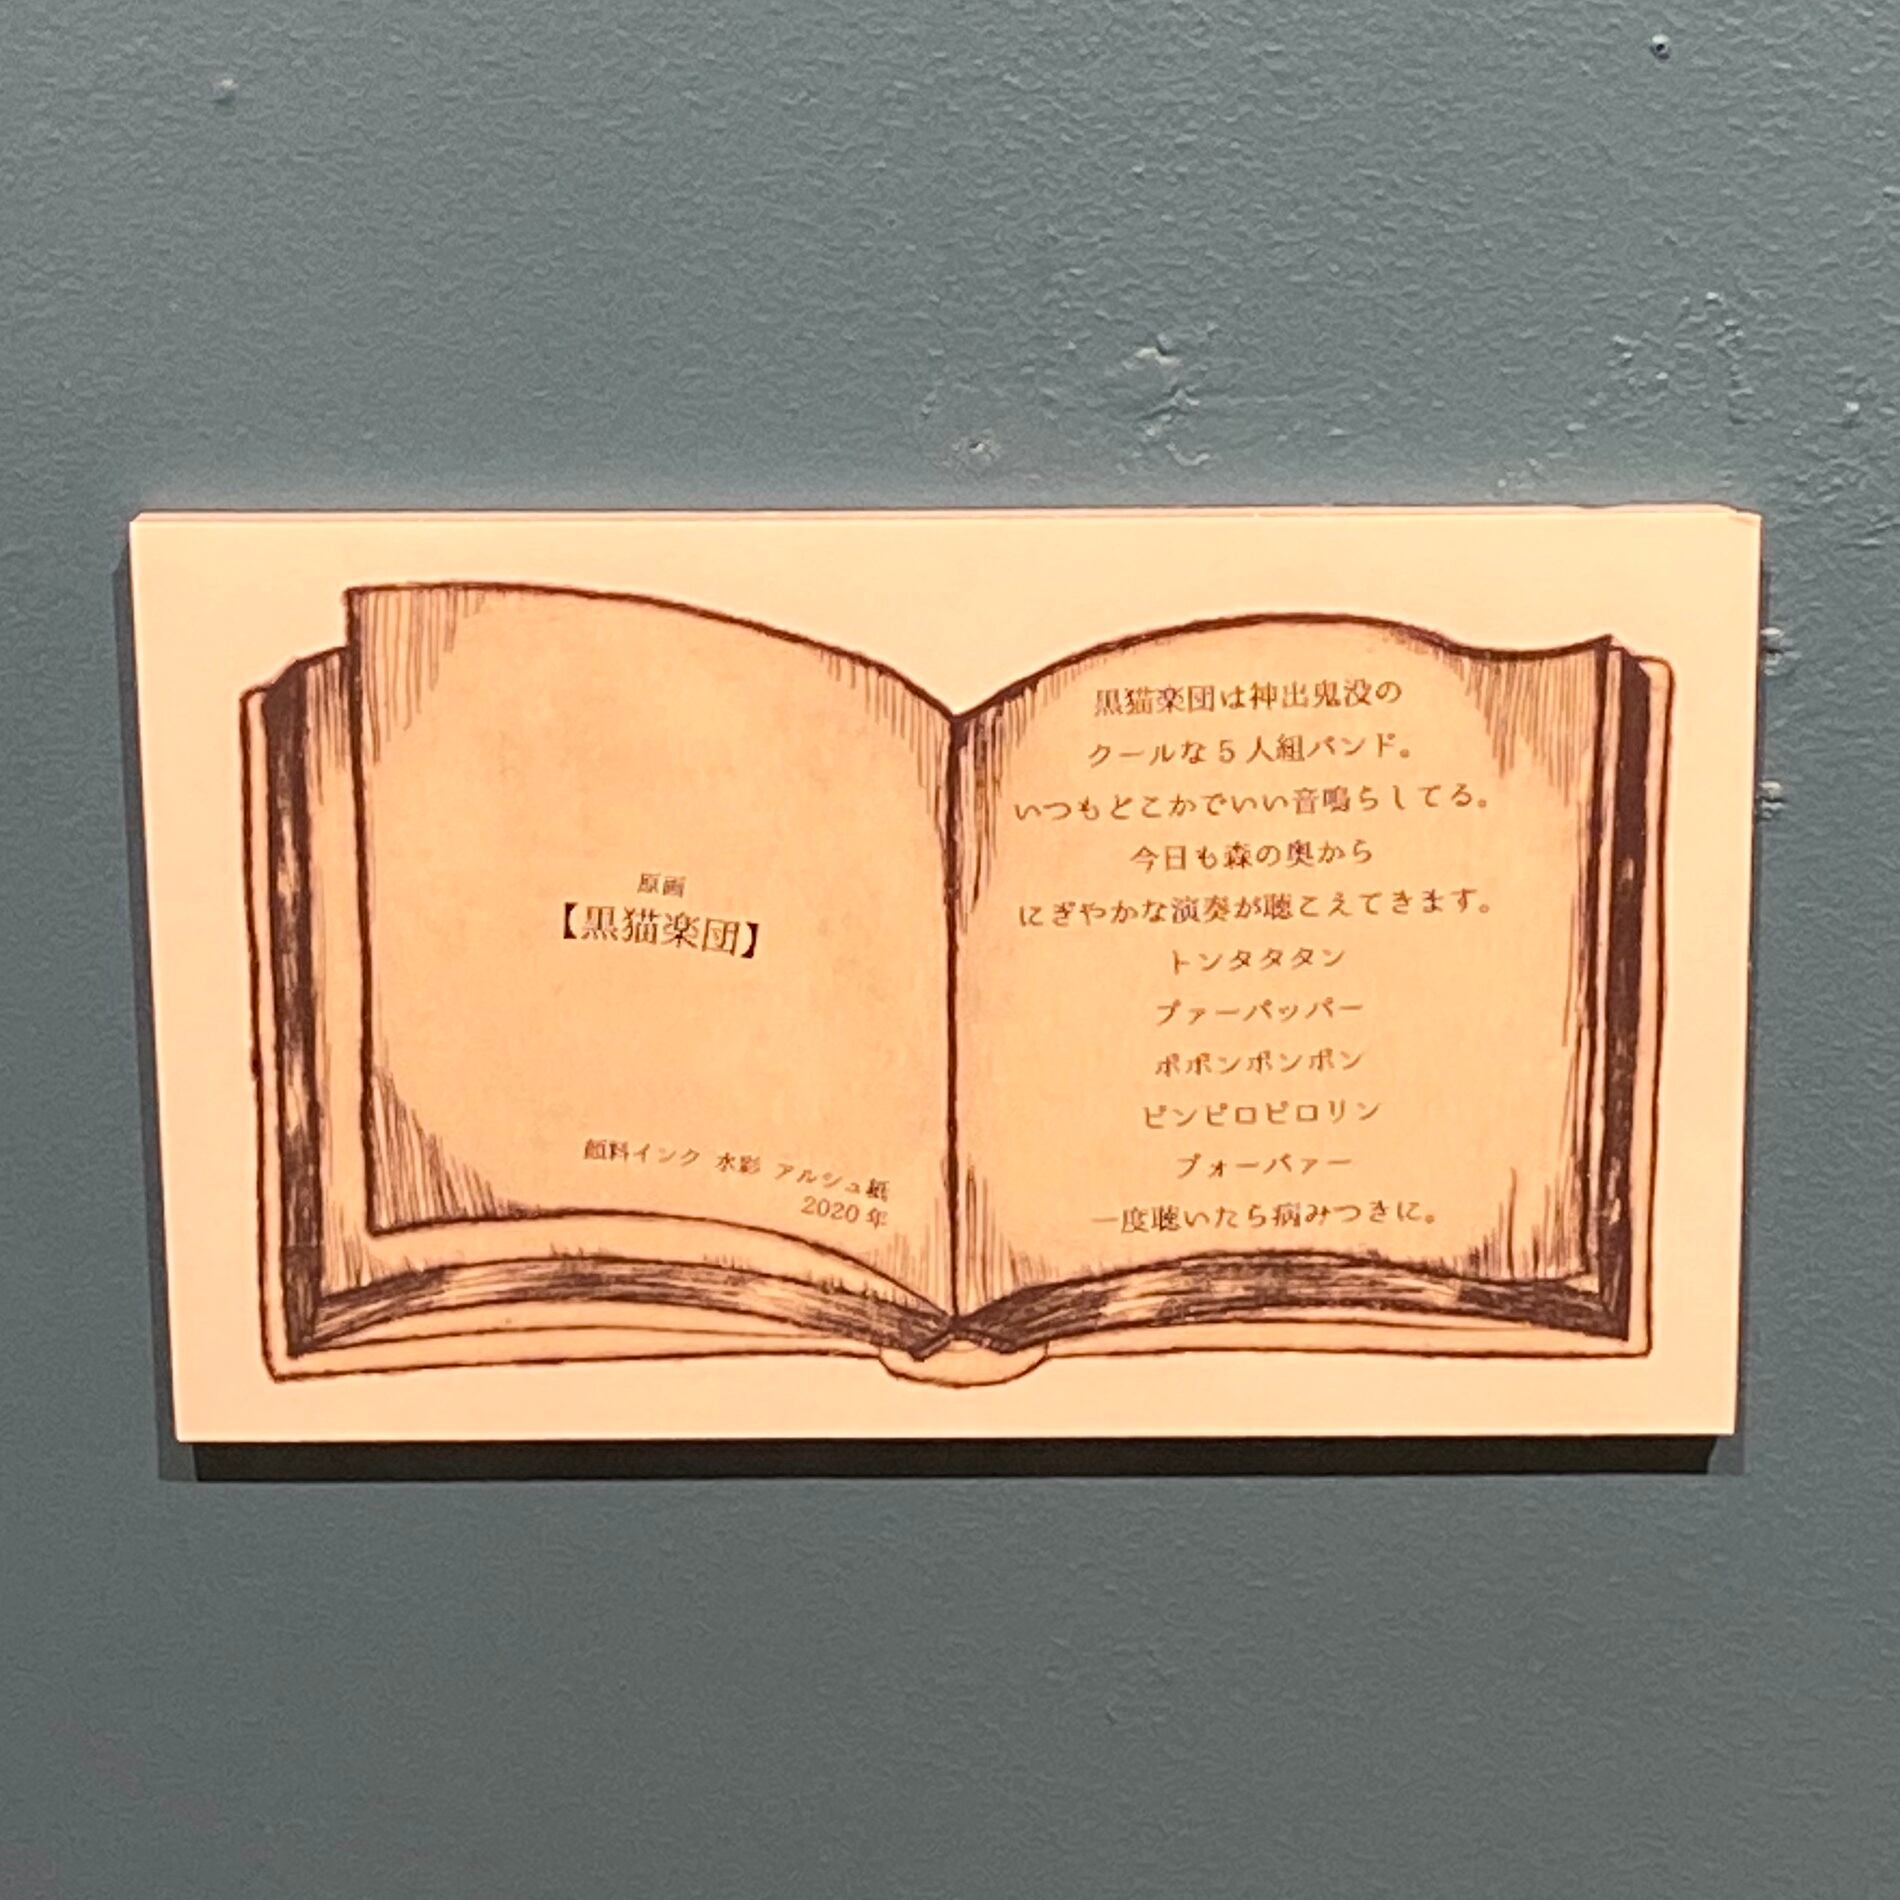 原画
【黒猫楽団】
顔料インク 水彩 アルシュ紙
2020年
黒猫楽団は神出鬼没の
クールな5人組バンド。
いつもどこかでいい音鳴らしてる。
今日も森の奥から
にぎやかな演奏が聴こえてきます。
トンタタタン
プァーパッパー
ポポンポンポン
ピンピロピロリン
ブォーバァー
一度聴いたら病みつきに。